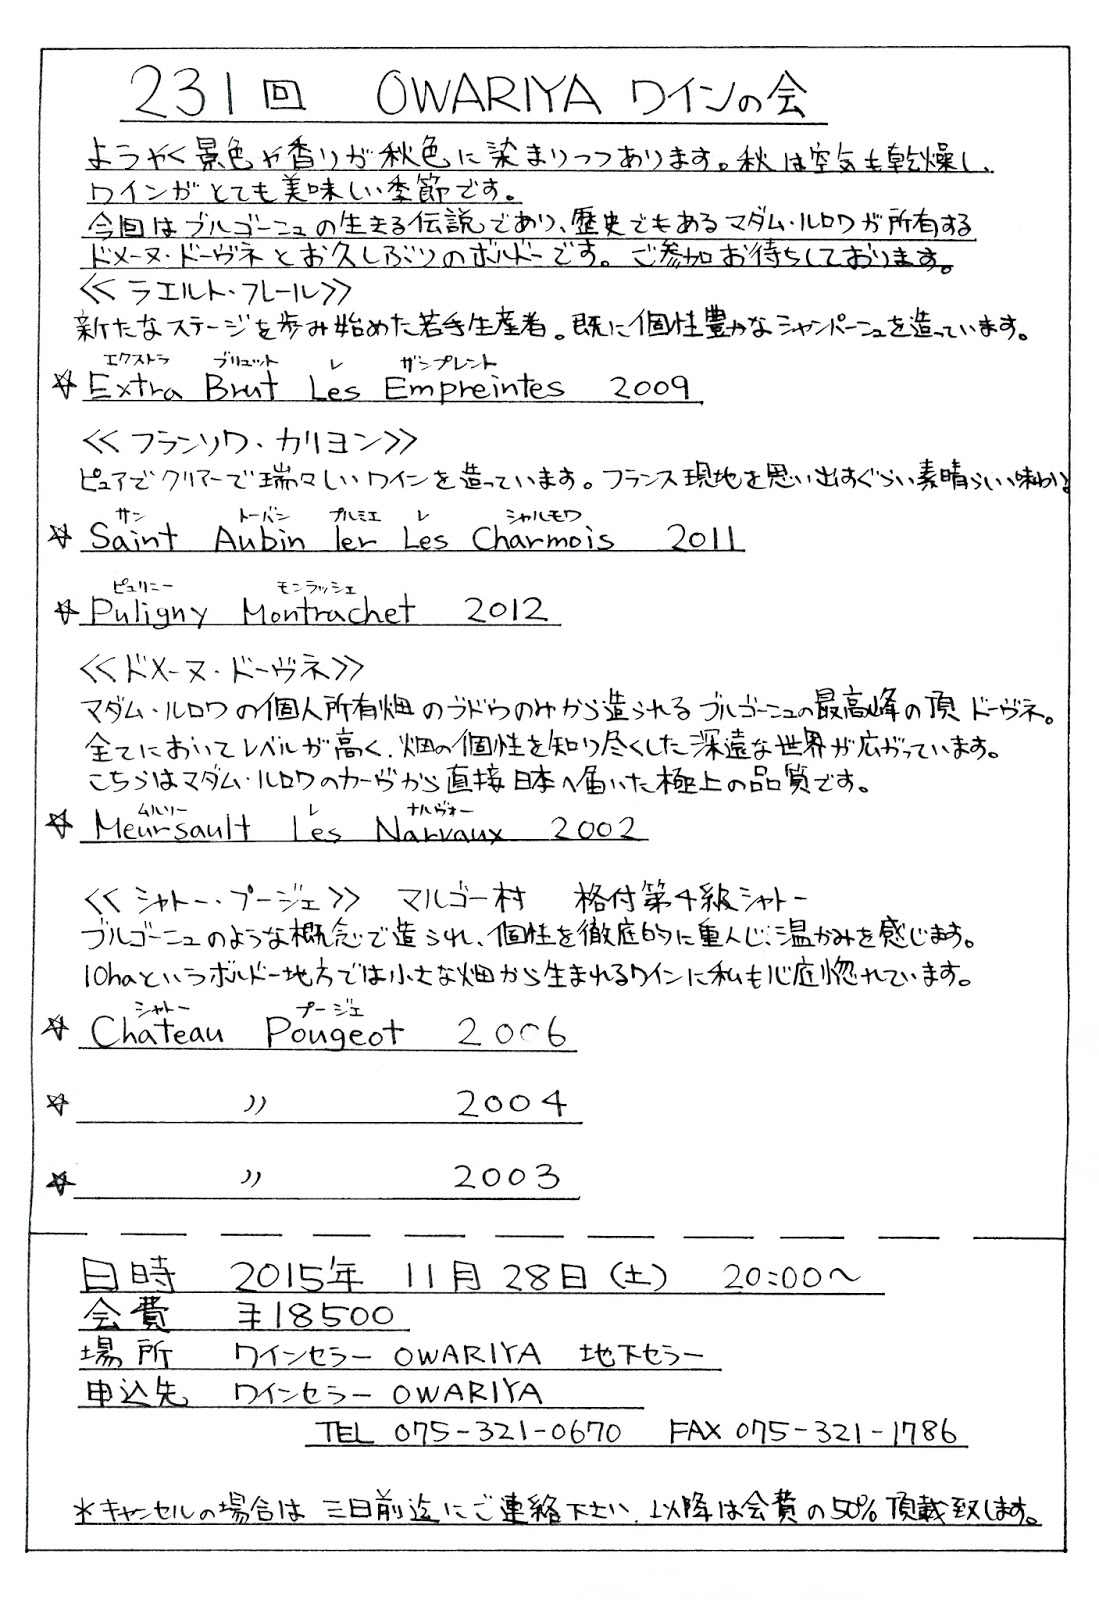 231回 OWARIYA ワインの会
ようやく景色や香りが秋色に染まりつつあります。秋は空気も乾燥し、
ワインがとても美味しい季節です。
今回はブルゴーニュの生きる伝説であり、歴史でもあるマダム・ルロワが所有する
ドメーヌ・ドーヴネとお久しぶりのボルドーです。ご参加お待ちしております。
≪ラエルト・フレール≫
新たなステージを歩み始めた若手生産者。既に個性豊かなシャンパーニュを造っています。
エクストラ ブリュット レ ザンプレント
☆Extra Brut Les Empreintes 2009
≪フランソワ・カリヨン≫
ピュアでクリアーで瑞々しいワインを造っています。フランス現地を思い出すぐらい素晴らしい味わい。
サン トーバン プルミエ レ シャルモワ
☆Saint Aubin 1er Les Charmois 2011
ピュリニー モンラッシェ
☆Puligny Montrachet 2012
≪ドメーヌ・ドーヴネ≫
マダム・ルロワの個人所有畑のブドウのみから造られるブルゴーニュの最高峰の頂 ドーヴネ。
全てにおいてレベルが高く、畑の個性を知り尽くした深遠な世界が広がっています。
こちらはマダム・ルロワのカーヴから直接日本へ届いた極上の品質です。
ムルソー レ ナルヴォー
☆Meursault Les Narvaux 2002
≪シャトー・プージェ≫ マルゴー村 格付第4級シャトー
ブルゴーニュのような概念で造られ、個性を徹底的に重んじ、温かみを感じます。
10haというボルドー地方では小さな畑から生まれるワインに私も心底惚れています。
シャトー プージェ
☆Chateau Pougeot 2006
☆ 〃 2004
☆ 〃 2003
日時 2015年 11月28日(土) 20:00〜
会費 ¥18500
場所 ワインセラー OWARIYA 地下セラー
申込先 ワインセラー OWARIYA
TEL 075-321-0670 FAX 075-321-1786
*キャンセルの場合は三日前迄にご連絡下さい、以降は会費の50%頂載致します。